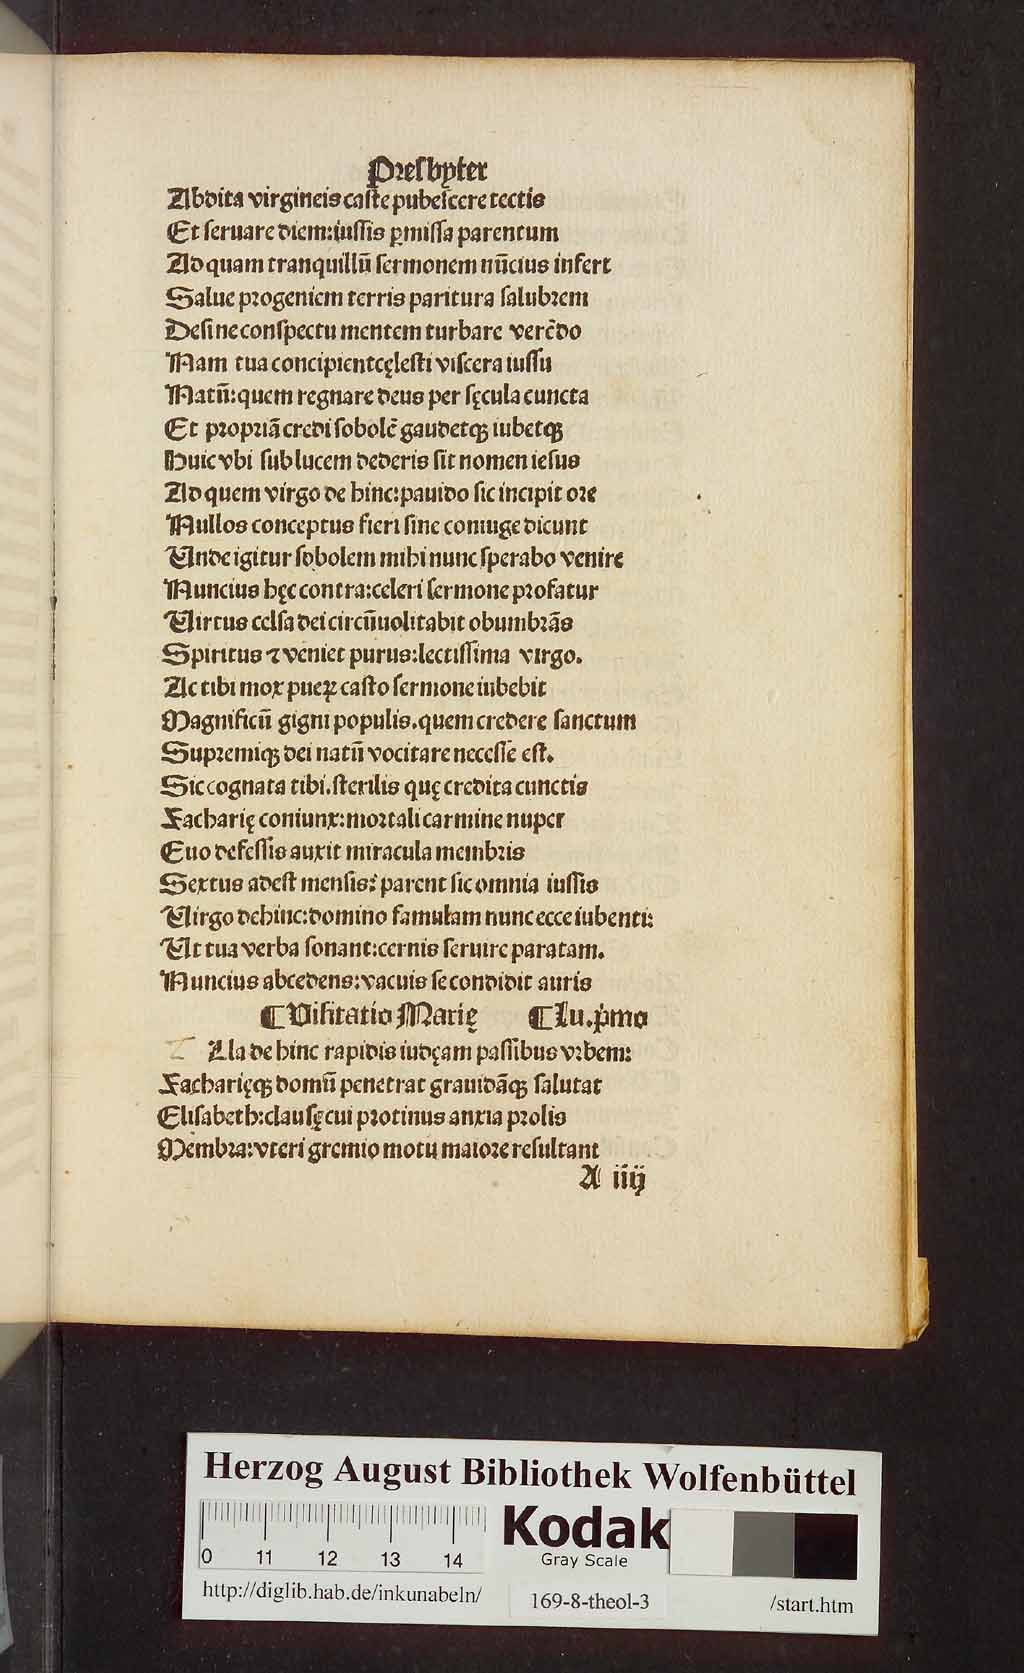 Presbyter
Abdita virgineis caste pubescere tectis
Et seruare diem:iussis ꝑmissa parentum
Ad quam tranquillū sermonem nūcius infert
Salue progeniem terris paritura salubrem
Desine conspectu mentem turbare verēdo
Nam tua concipient cęlesti viscera iussu
Natū:quem regnare deus per sęcula cuncta
Et propriā credi sobolē gaudetqꝫ iubetqꝫ
Huic vbi sub lucem dederis sit nomen iesus
Ad quem virgo de hinc:pauido sic incipit ore
Nullos conceptus fieri sine coniuge dicunt
Unde igitur sobolem mihi nunc sperabo venire
Nuncius hęc contra:celeri sermone profatur
Uirtus celsa dei circūuolitabit obumbrās
Spiritus ⁊ veniet purus:lectissima virgo.
Ac tibi mox pueꝝ casto sermone iubebit
Magnificū gigni populis.quem credere sanctum
Supremiqꝫ dei natū vocitare necesse est.
Sic cognata tibi.sterilis quę credita cunctis
Zacharię coniunx:mortali carmine nuper
Euo defessis auxit miracula membris
Sextus adest mensis:parent sic omnia iussis
Uirgo dehinc:domino famulam nunc ecce iubenti:
Ut tua verba sonant:cernis seruire paratam.
Nuncius abcedens:vacuis se condidit auris
¶ Visitatio Marię ¶ Lu.pͥmo
Illa de hinc rapidis iudęam passibus vrbem:
Zacharięqꝫ domū penetrat grauidāqꝫ salutat
Elisabeth:clausę cui protinus anxia prolis
Membra:vteri gremio motu maiore resultant
A iiij
Herzog August Bibliothek Wolfenbüttel
0 11 12 13 14
Kodak
Gray Scale
http://diglib.hab.de/inkunabeln/ 169-8-theol-3 /start.htm